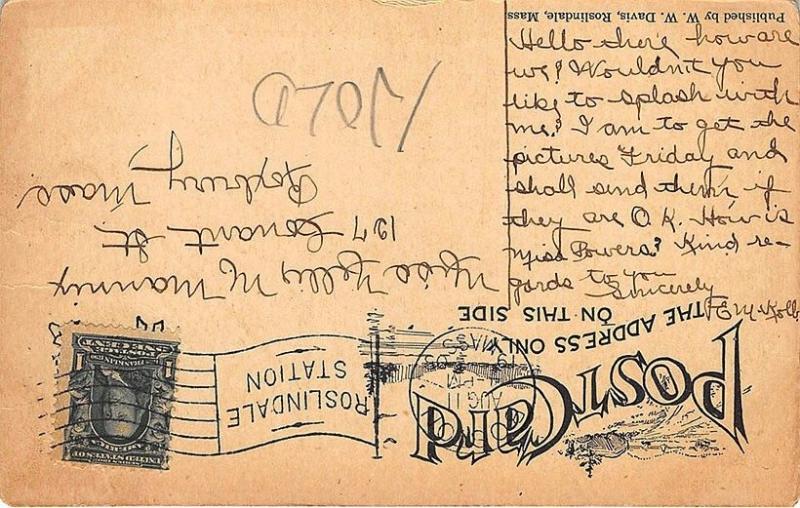 Published by W. W. Davis, Roslindale, Mass
Hello there how are
we? Wouldn't you
like to splash with
me? I am to get the
pictures Friday and
shall send them if
they are O.K. How is
Miss Powers? Kind re-
gards to you
Sincerely
Post Card
THE ADDRESS ONLY
ON THIS SIDE
Miss Nelly M. Manning
127 Conant St.
Roxbury Mass
ROSLINDALE
STATION
AUG 11
PM
MASS
ONE CENT
FRANKLIN
UNITED STATES OF